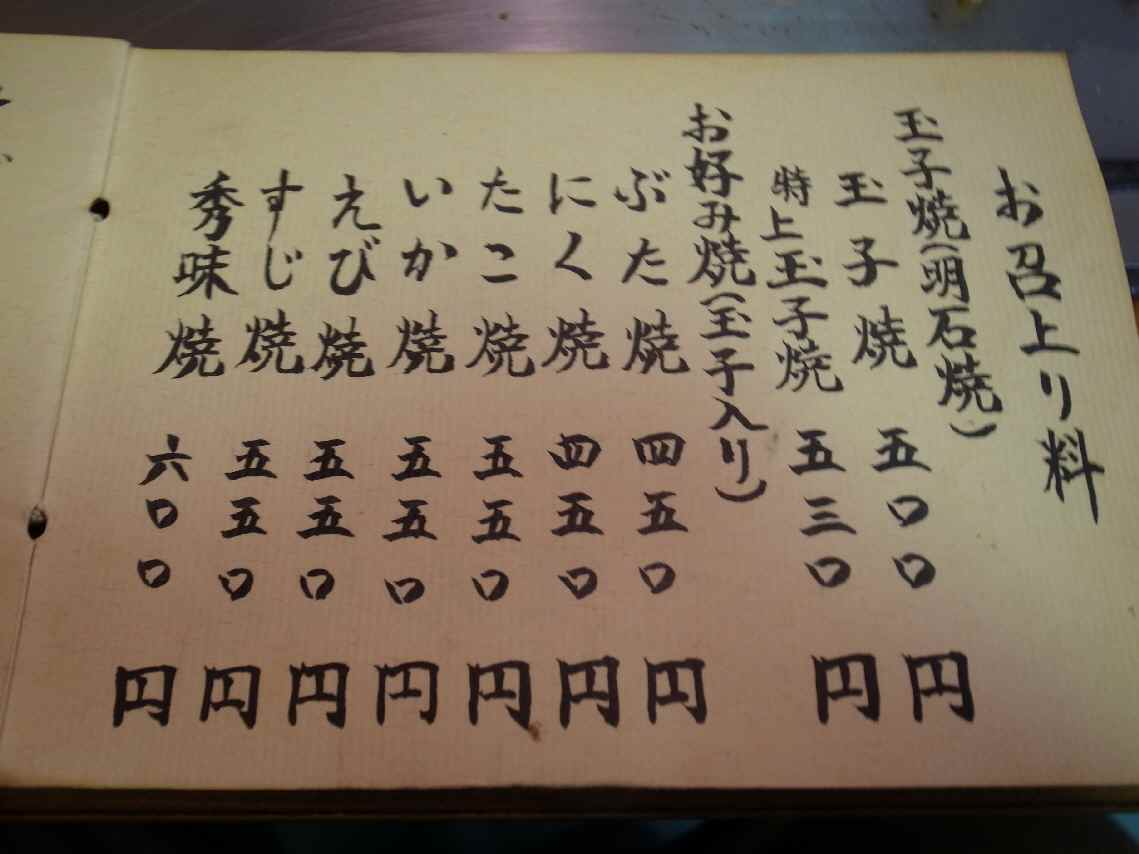 お召上り料
玉子焼(明石焼)
玉子焼 五〇〇円
特上玉子焼 五三〇円
お好み焼(玉子入り)
ぶた焼 四五〇円
にく焼 四五〇円
たこ焼 五五〇円
いか焼 五五〇円
えび焼 五五〇円
すじ焼 五五〇円
秀味焼 六〇〇円